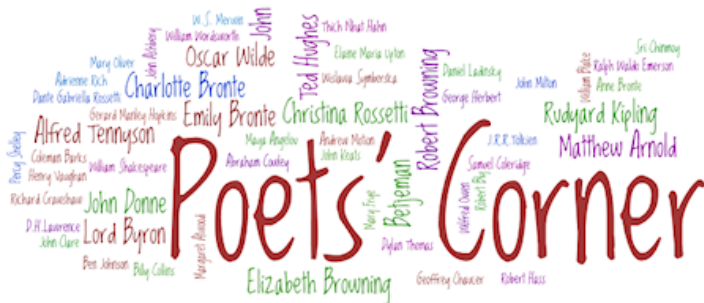 W.S. Merwin
William Wordsworth
John
Thich Nhat Hahn
Mary Oliver
John Ashbery
Oscar Wilde
Ted Hughes
Elaine Maria Upton
Sri Chinmoy
Adrienne Rich
Charlotte Bronte
Wislawa Symborska
Daniel Ladinsky
Ralph Waldo Emerson
Dante Gabriella Rossetti
John Milton
William Blake
Anne Bronte
Gerard Manley Hopkins
Emily Bronte
Christina Rossetti
Robert Browning
George Herbert
Rudyard Kipling
Alfred Tennyson
Maya Angelou
Andrew Motion
J.R.R.Tolkien
Matthew Arnold
Percy Shelley
Coleman Barks
John Keats
William Shakespeare
Abraham Cowley
Samuel Coleridge
Henry Vaughan
Richard Crawshaw
John Donne
Poets' Corner
Betjeman
Mary Frye
Wilfred Owen
Robert Bly
D.H.Lawrence
Lord Byron
John Clare
Margaret Atwood
Dylan Thomas
Ben Johnson
Billy Collins
Elizabeth Browning
Geoffrey Chaucer
Robert Hass